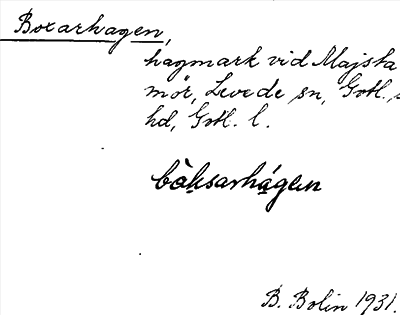 Boxarhagen,
hagmark vid Majska
mör, Levede sn, Gotl. s
hd, Gotl. l.
bòksarhágen
B. Bolin 1931.